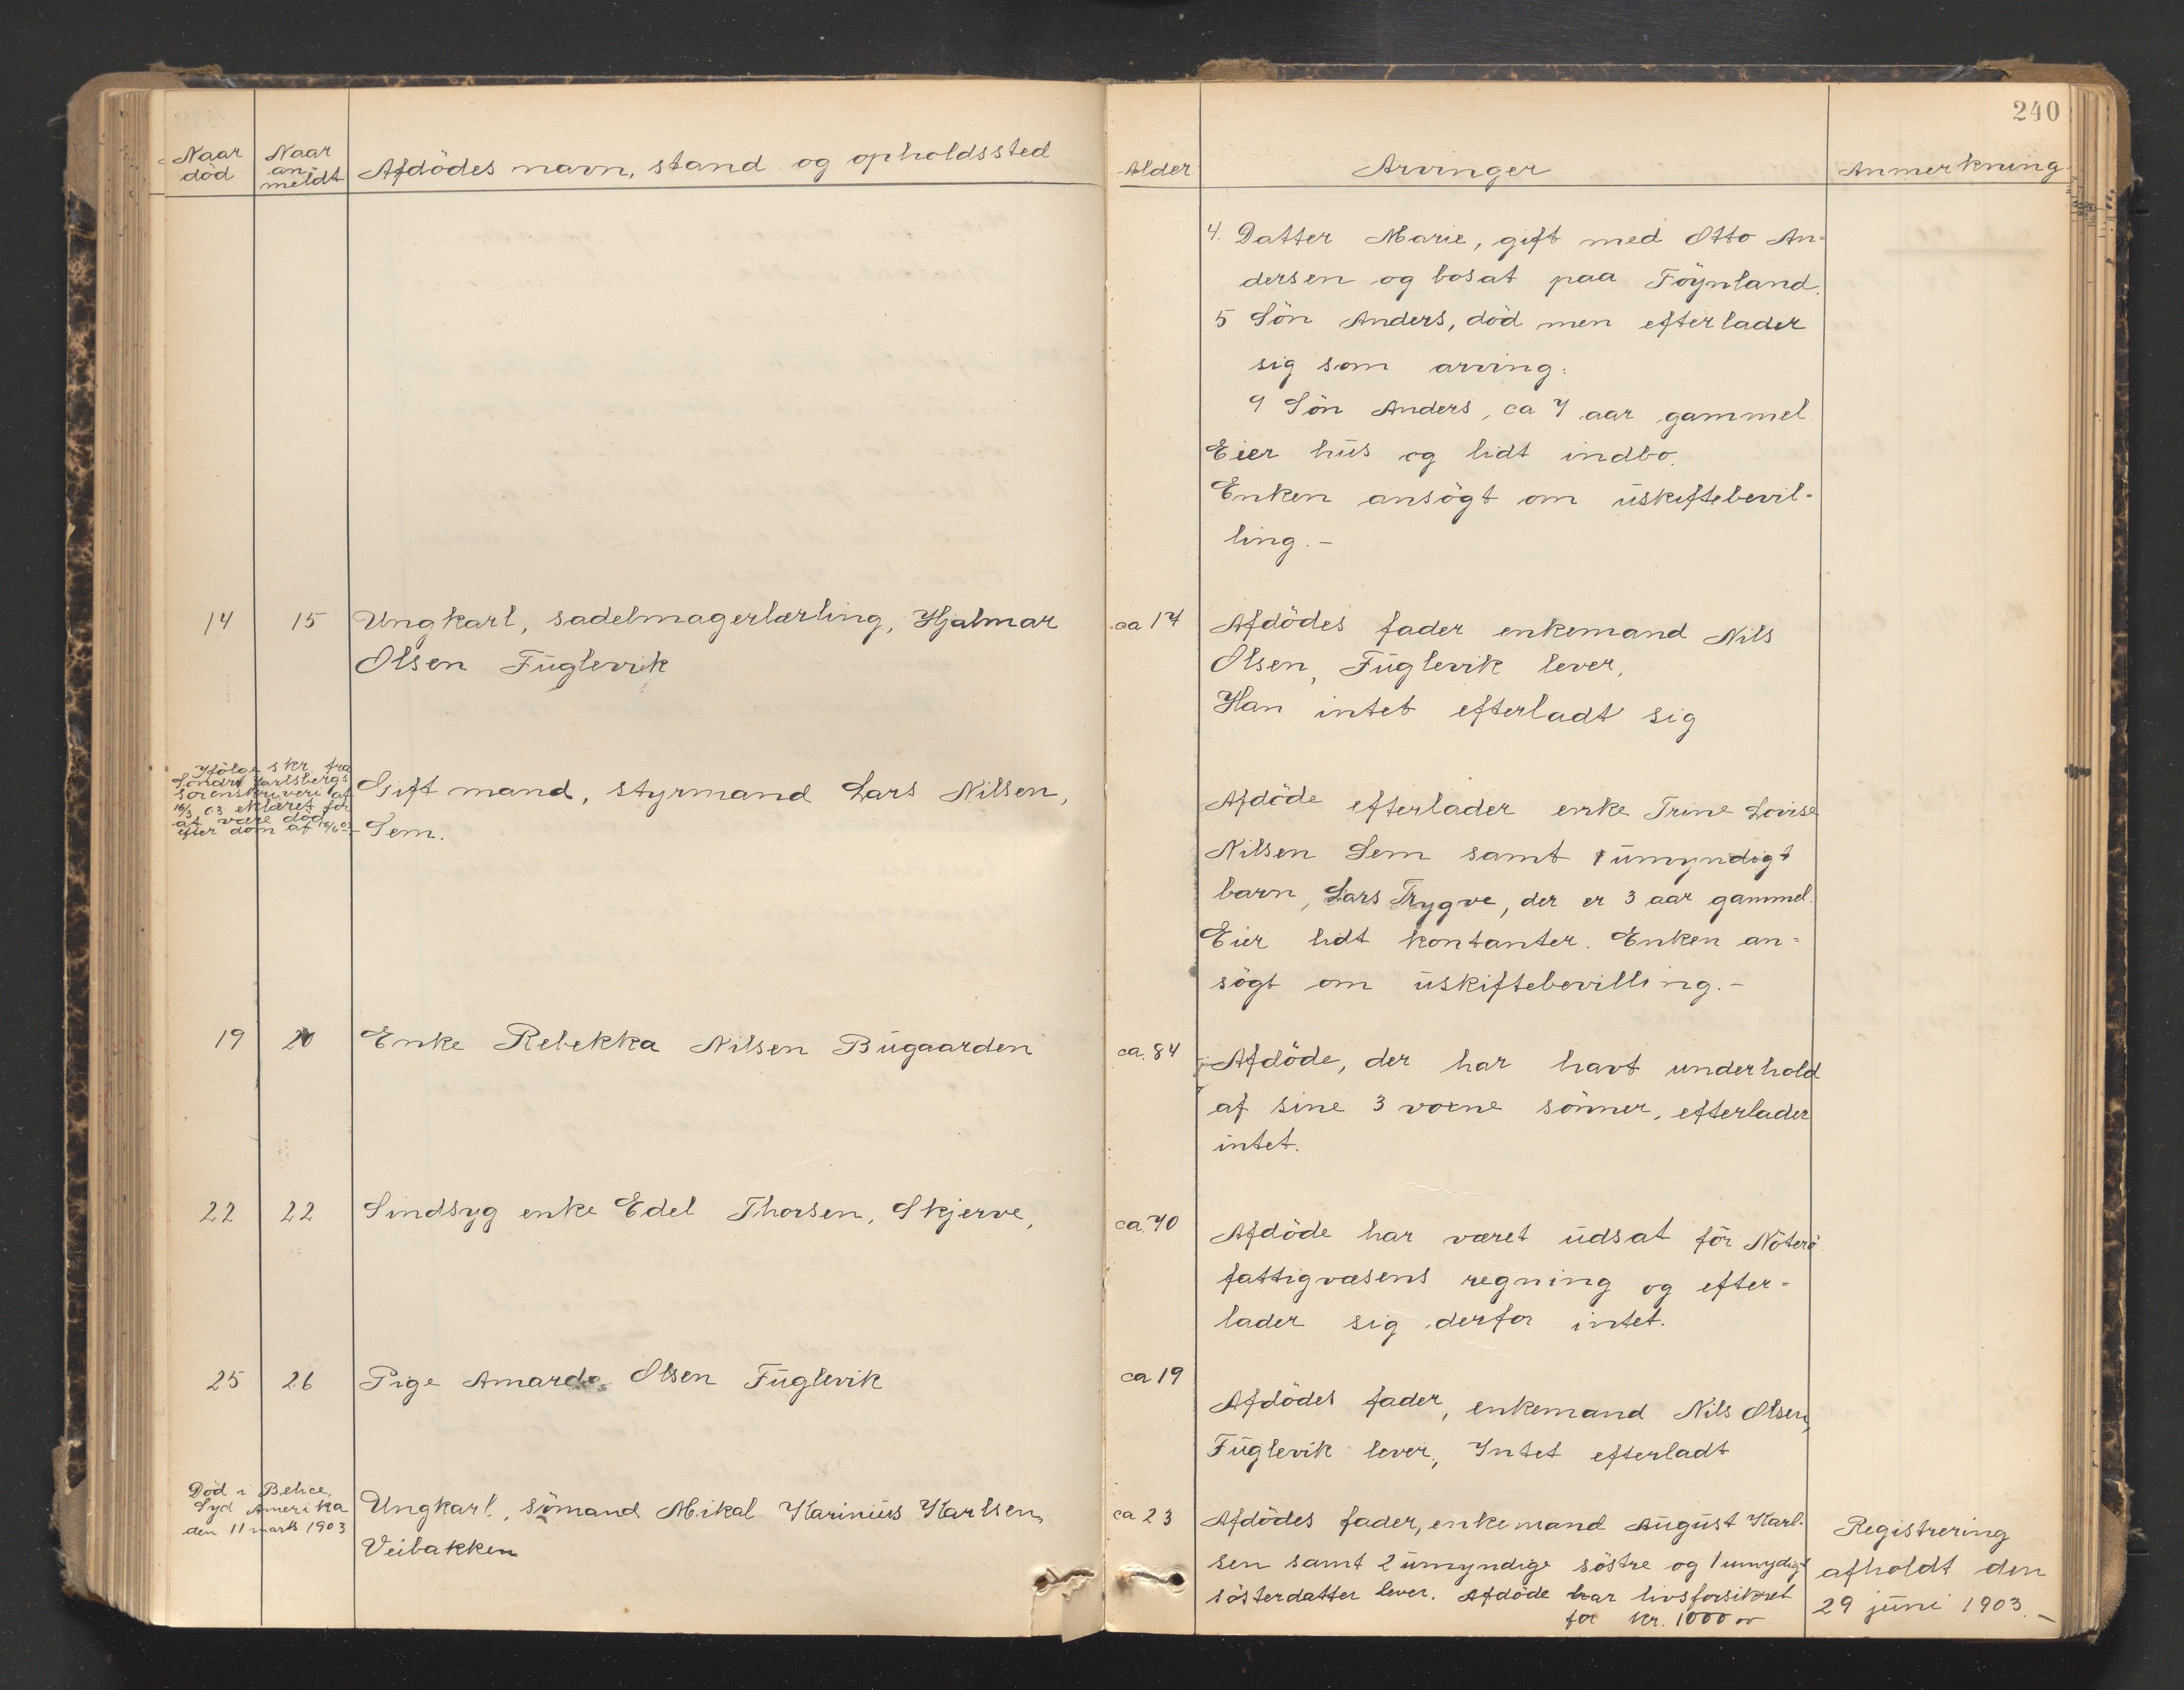 240
Naar død
Naar anmeldt
Afdödes navn, stand og opholdssted
Alder
Arvinger
Anmerkning
4. Datter Marie, gift med Otto An-
dersen og bosat paa Föynland.
5 Sön Anders, död men efterlader
sig som arving:
9 Sön Anders, ca 7 aar gammel
Eier hus og lidt indbo.
Enken ansögt om uskiftebevil-
ling.-
14 15 Ungkarl, sadelmagerlærling, Hjalmar
Olsen Fuglevik
ca 14
Afdödes fader enkemand Nils
Olsen, Fuglevik lever,
Han intet efterladt sig
Ifölge skr. fra
Söndre Jarlsbergs
sorenskriveri af
16/3 03 eklæret for
at være död
efter dom af 16/6 02
Gift mand, styrmand Lars Nilsen,
Sem.
Afdöde efterlader enke Trine Lovise
Nilsen Sem samt 1 umyndigt
barn, Lars Trygve, der er 3 aar gammel.
Eier lidt kontanter. Enken an-
sögt om uskiftebevilling.-
19 20 Enke Rebekka Nilsen Bugaarden
ca. 84
Afdöde, der har havt underhold
af sine 3 voxne sönner, efterlader
intet.
22 22 Sindsyg enke Edel Thorsen, Skjerve,
ca. 70
Afdöde har været udsat for Nöterö
fattigvæsens regning og efter-
lader sig derfor intet.
25 26 Pige Amarda Olsen Fuglevik
ca 19
Afdödes fader, enkemand Nils Olsen,
Fuglevik lever, Intet efterladt
Död i Belice,
Syd Amerika
den 11 marts 1903
Ungkarl, sömand Mikal Karinius Karlsen,
Veibakken
ca 23
Afdödes fader, enkemand August Karl-
sen samt 2 umyndige söstre og 1 umydigt
sösterdatter lever. Afdöde har livsforsikret
for kr. 1000 00
Registrering
afholdt den
29 juni 1903.-